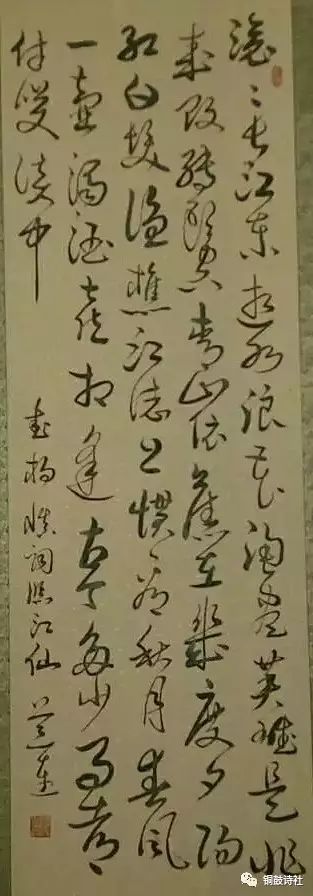 滚〻长江东逝水浪花淘尽英雄是非
成败转头空青山依旧在几度夕阳
红白发渔樵江渚上惯看秋月春风
一壶濁酒喜相逢古今多少事都
付笑谈中
书杨慎词临江仙
铜鼓诗社